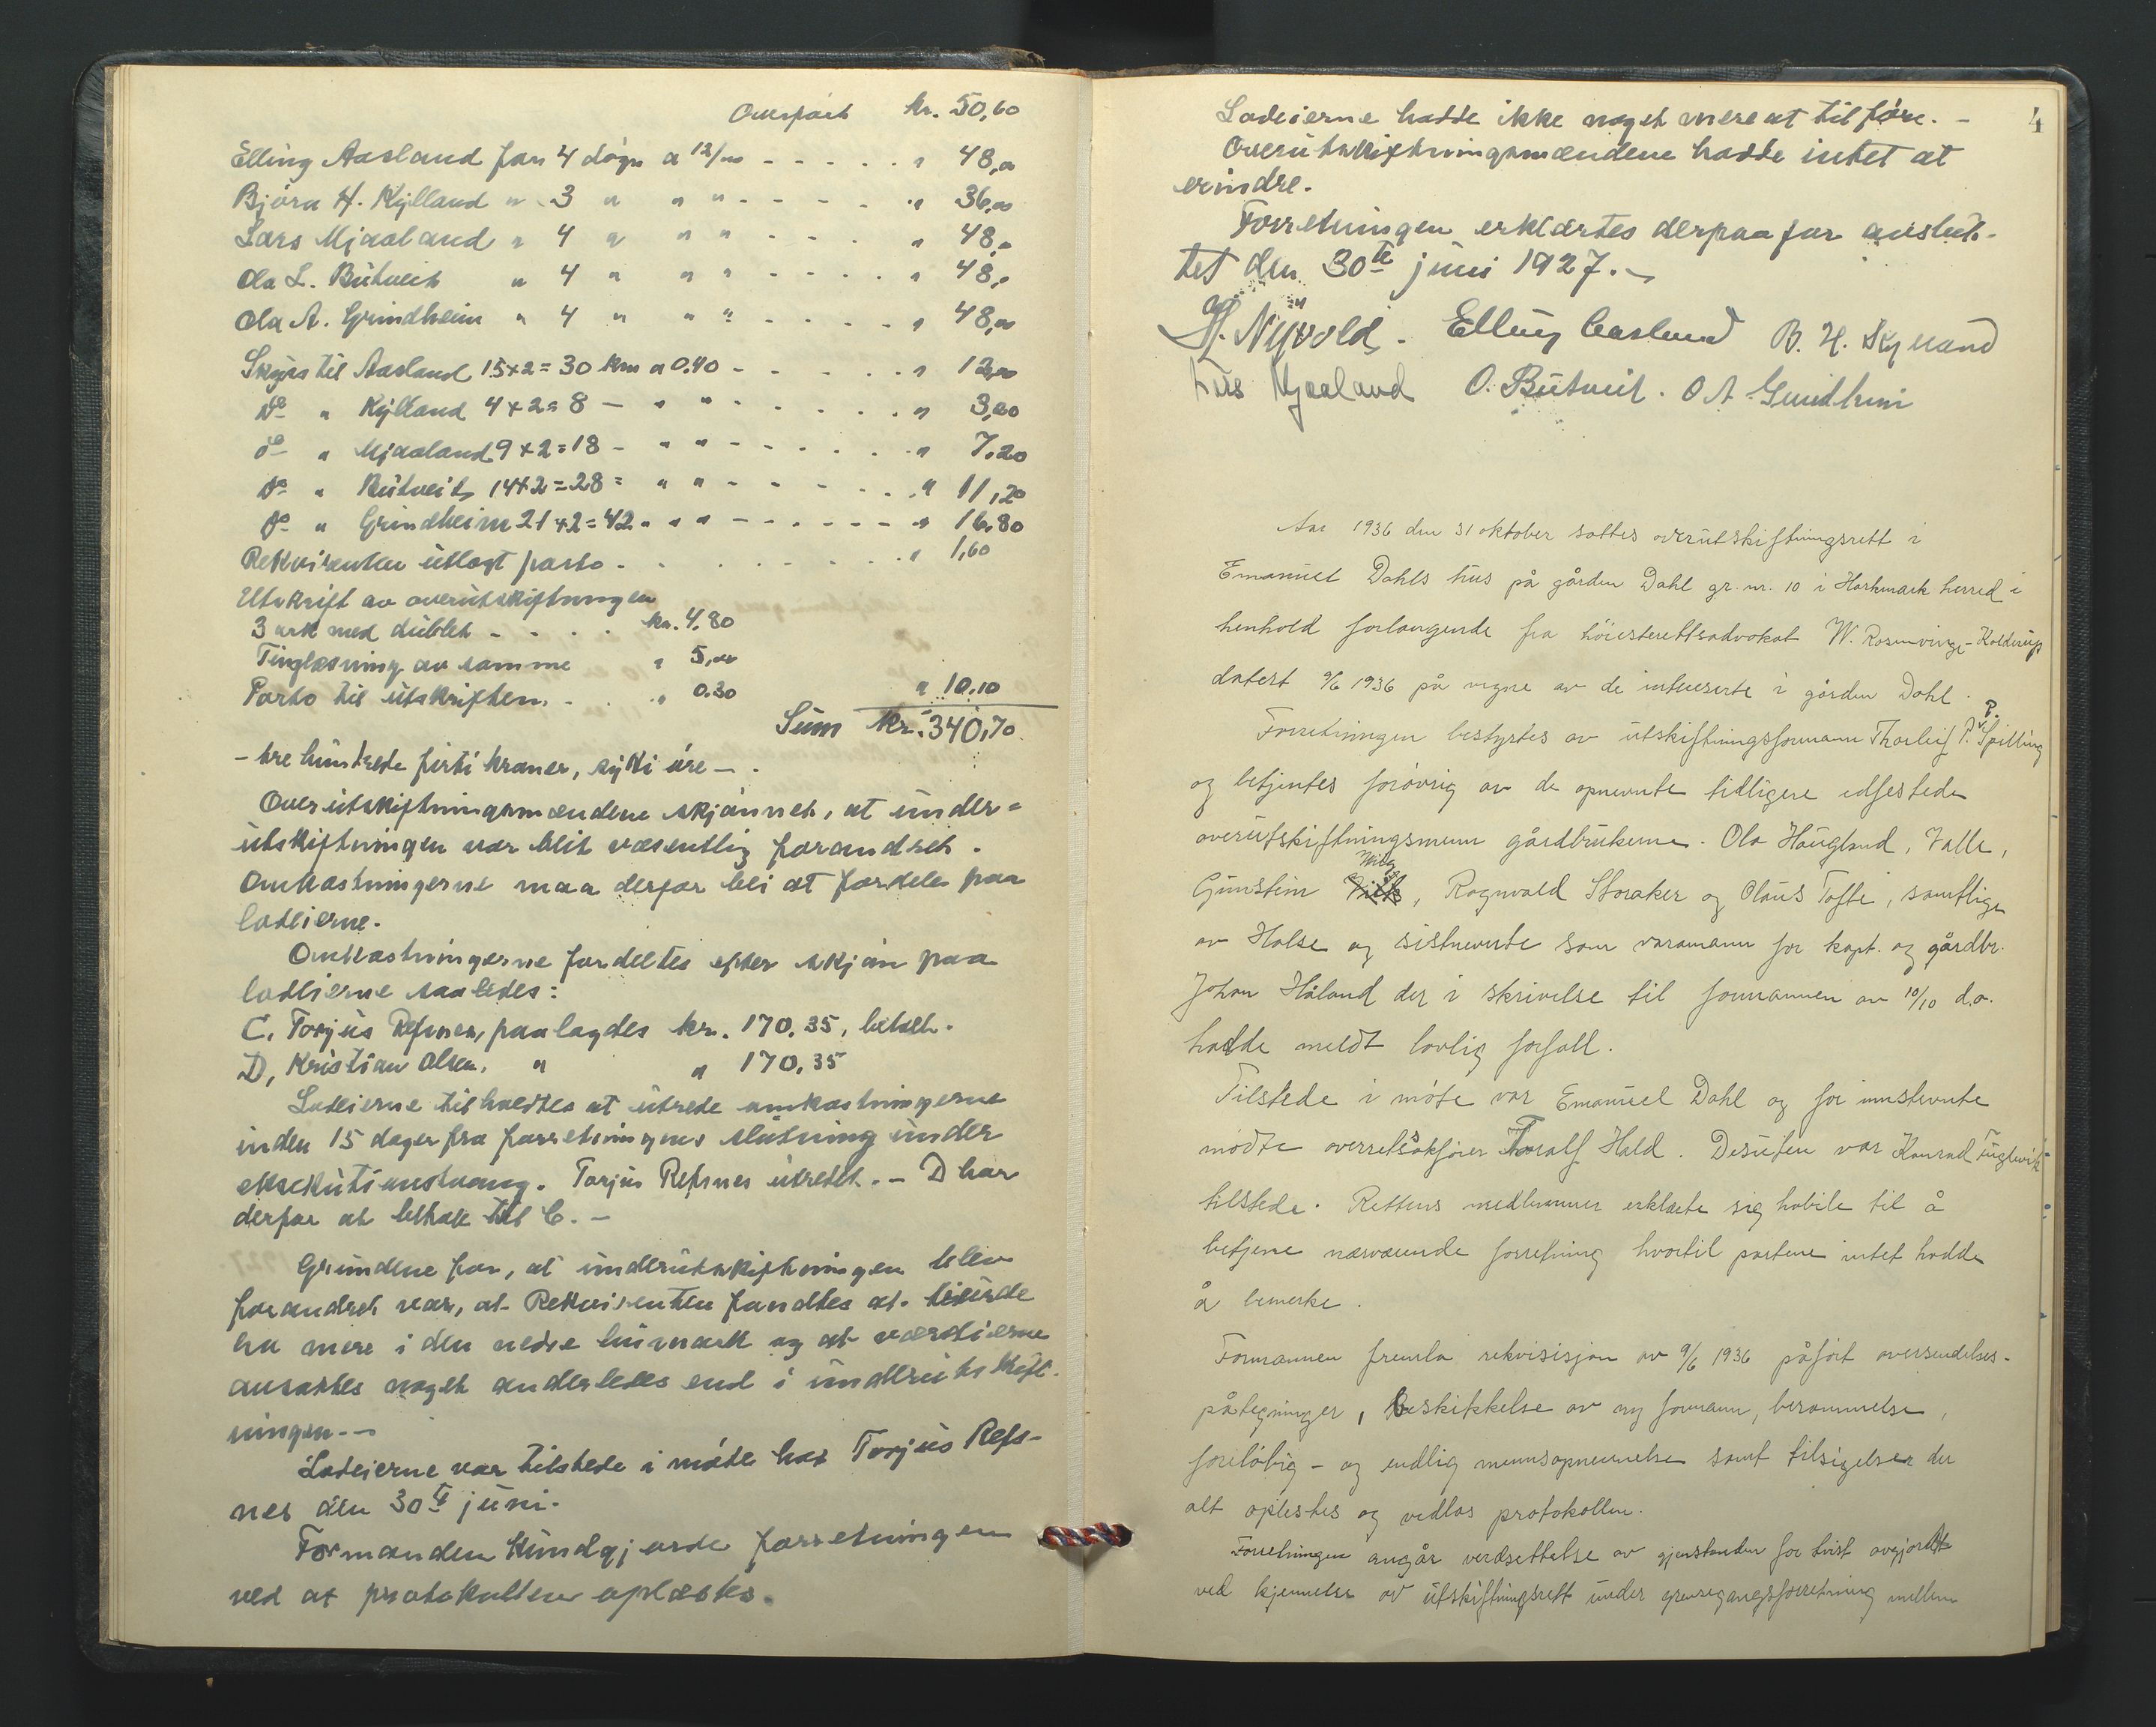 Overført kr. 50,60
Elling Aasland for 4 døgn a 12/00 - - - - - " 48,00
Bjørn H. Kylland " 3 " " " - - - - - " 36,00
Lars Mjaaland " 4 " " " - - - " 48,-
Ola L. Butveit " 4 " " " - - - - - " 48,-
Ola A. Grindheim " 4 " " " - - - - - " 48,00
Skyss til Aasland 15x2=30 km a 0.40 - - - - - " 12,00
do " Kylland 4x2=8 - " " - - - - - " 3,20
do " Mjaaland 9x2=18 - " " - - - - - " 7.20
do " Butveit 14x2=28 = " " - - - - - " 11,20
do " Grindheim 21x2=42 " " " - - - - - - " 16.80
Rekvirenten utlagt porto - - - - - " 1,60
Utskrift av overutskiftningen
3 ark med dublet - - - - kr. 4.80
Tinglæsning av samme " 5,00
Porto til utskriften. - - " 0.30 " 10.10
Sum kr. 340,70
- tre hundrede førti kroner, sytti øre - .
Overutskiftningsmændene skjønnet, at under-
utskiftningen var blit væsentlig forandret.
Omkostningerne maa derfor bli at fordele paa
lodeierne.
Omkostningerne fordeltes efter skjøn paa
lodeierne saaledes:
C. Torjus Refsnes, paalagdes kr. 170.35, betalt.
D, Kristian Olsen, " " 170.35
Lodeierne tilholdtes at utrede omkostningerne
inden 15 dager fra forretningens slutning under
eksekutionstvang. Torjus Refsnes utredet. - D har
derfor at betale til C. -
Grundene for, at underutskiftningen blev
forandret var, at Rekvirenten fandtes at burde
ha mere i den nedre buimark og at værdierne
ansattes noget anderledes end i underutskift-
ningen. -
Lodeierne var tilstede i møte hos Torjus Refs-
nes den 30te juni.
Formanden kundgjorde forretningen
ved at protokollen oplæstes.
4
Lodeierne hadde ikke noget mere at tilføre. -
Overutskiftningsmændene hadde intet at
erindre.
Forretningen erklærtes derpaa for avslut-
tet den 30te juni 1927. -
Nyvold. Elling Aasland B. H. Kylland
Lars Mjaaland O. Butveit. O A Grindheim
Aar 1936 den 31 oktober sattes overutskiftningsrett i
Emanuel Dahls hus på gården Dahl gr. nr. 10 i Harkmark herred i
henhold forlangende fra höiesterettsadvokat W. Rosenvinge-Kolderup
datert 9/6 1936 på vegne av de interesserte i gården Dahl.
Forretningen bestyrtes av utskiftningsformann Thorleif P. Spilling
og betjentes forövrig av de opnevnte tidligere edfestede
overutskiftningsmenn gårdbrukerne. Ola Haugland, Valle,
Gunstein, Ragnvald Storaker og Olaus Tofte, samtlige
av Halse og sistnevnte som varamann for kapt. og gårdbr.
Johan Håland der i skrivelse til formannen av 10/10 d.a.
hadde meldt lovlig forfall.
Tilstede i möte var Emanuel Dahl og for innstevnte
mödte overretssakförer Toralf Hald. Desuten var Konrad Fuglevik
tilstede. Rettens medlemmer erklærte sig habile til å
betjene nærværende forretning hvortil partene intet hadde
å bemerke.
Formannen fremla rekvisisjon av 9/6 1936 påfört oversendelses-
påtegninger, beskikkelse av ny formann, berammelse,
forelöbig - og endlig mannsopnevnelse samt tilsigelser der
alt oplestes og vedlas protokollen.
Forretningen angår verdsettelse av gjenstanden for tvist avgjordt
ved kjennelse av utskiftningsrett under grensegangsforretning mellem